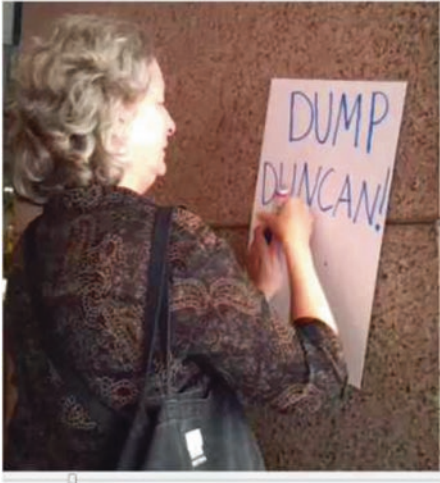 DUMP
DUNCAN!